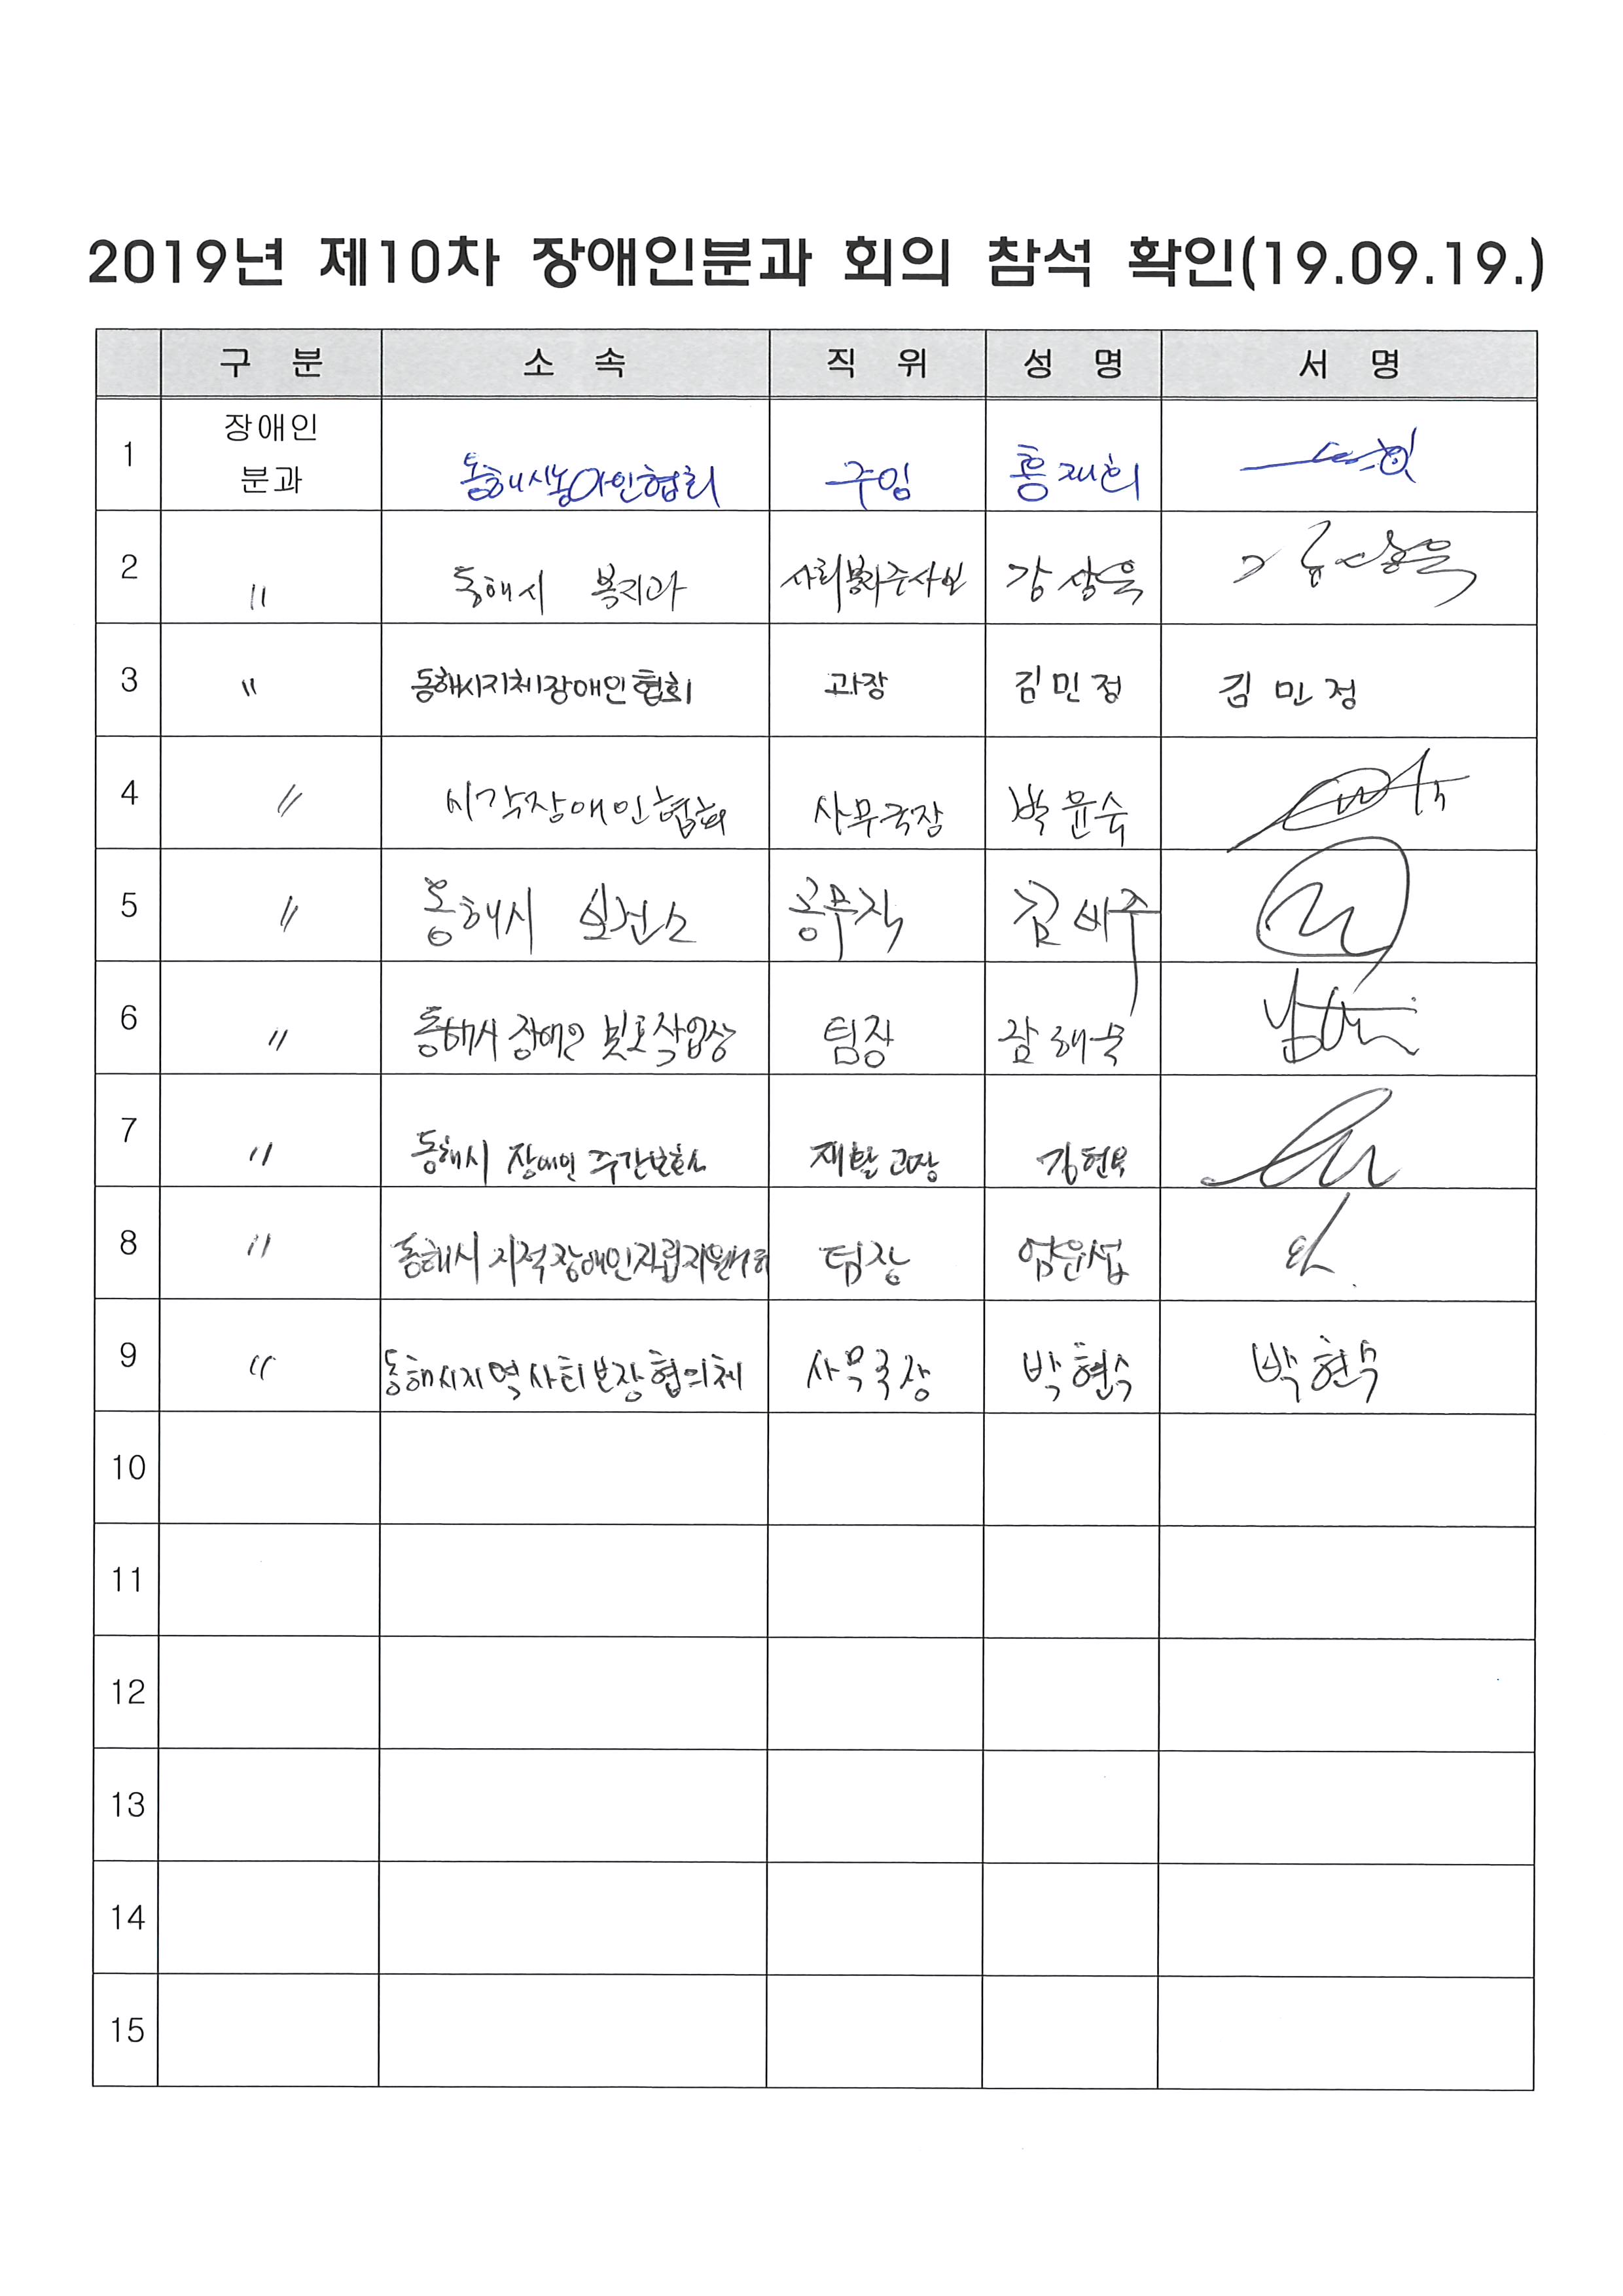 2019년 제10차 장애인분과 회의 참석 확인(19.09.19.)
구 분 소 속 직 위 성 명 서 명
1 장애인 분과 동해시농아인협회 주임 홍재희
2 〃 동해시 복지과 사회복지주사보 김상욱
3 〃 동해시지체장애인협회 과장 김민정 김민정
4 〃 시각장애인협회 사무국장 박윤숙
5 〃 동해시 보건소 공무직
6 〃 동해시 장애인 보호작업장 팀장
7 〃 동해시 장애인 주간보호소 재활과장 김현욱
8 〃 동해시 지적장애인자립지원센터 팀장 엄윤섭
9 〃 동해시지역사회보장협의체 사무국장 박현수 박현수
10
11
12
13
14
15